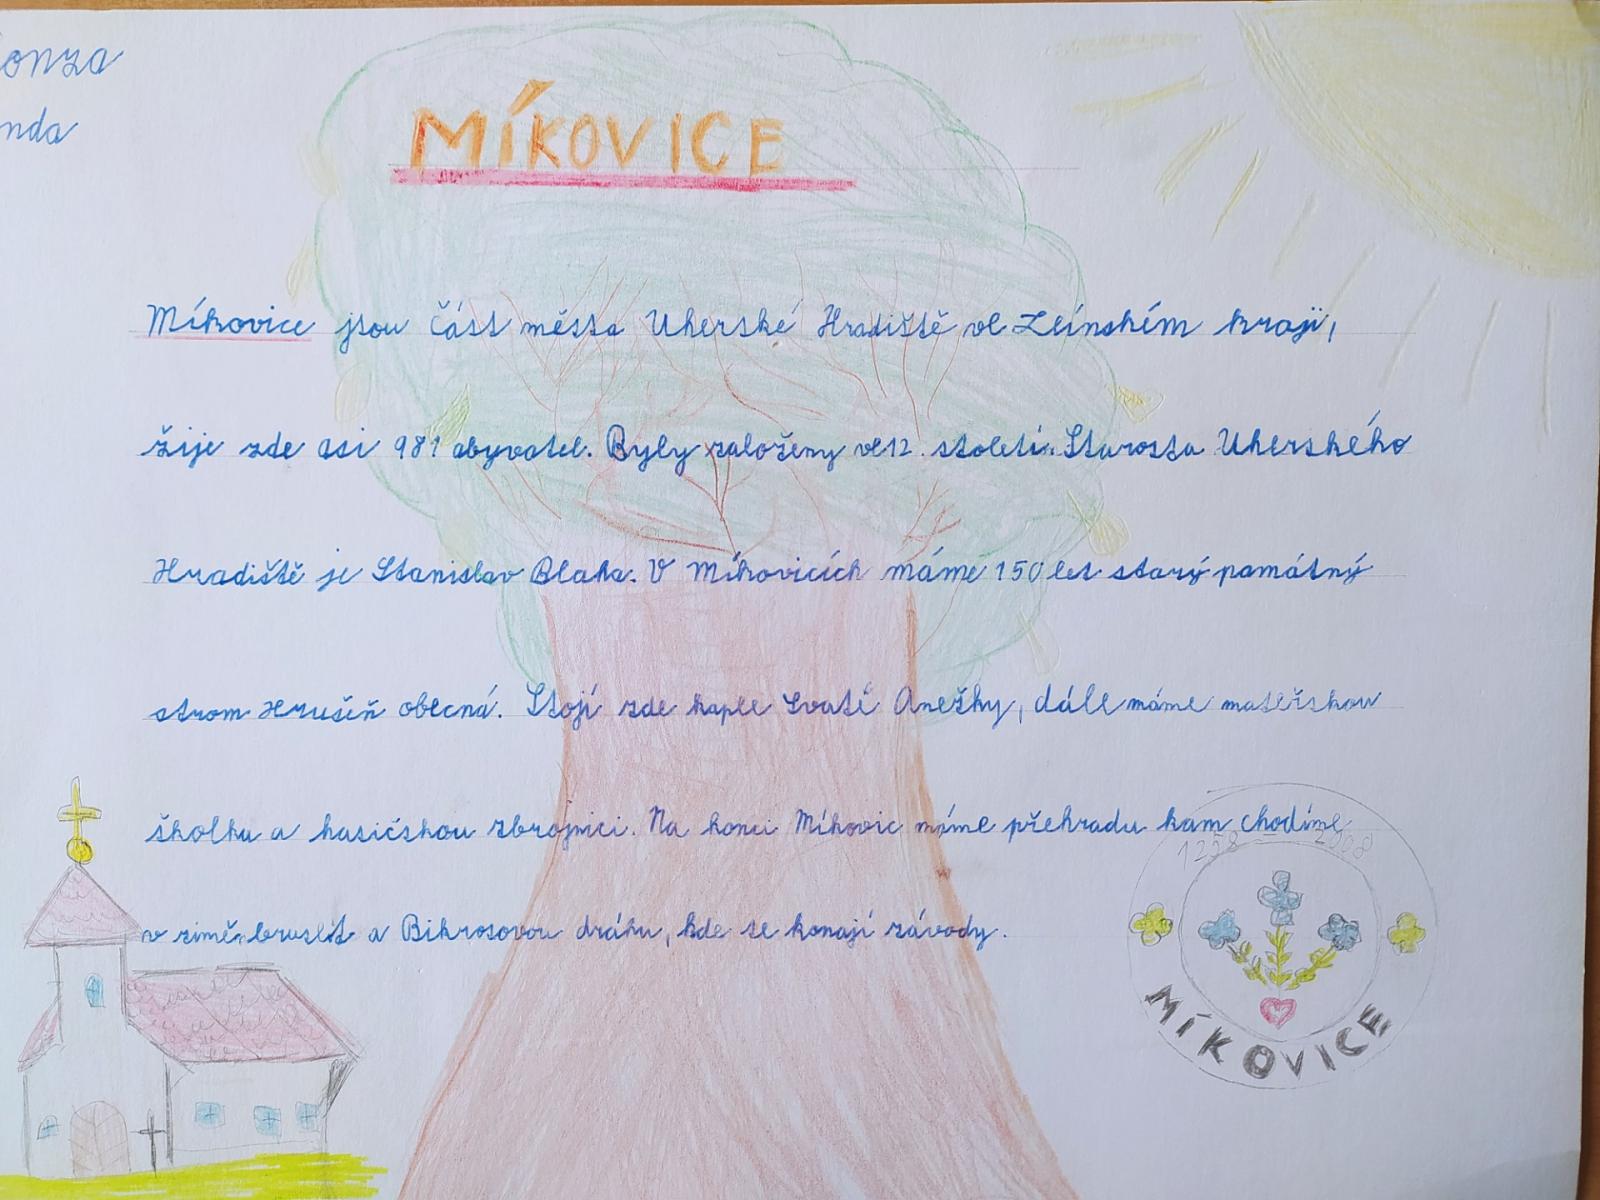 onza
nda
MÍKOVICE
Míkovice jsou část města Uherské Hradiště ve Zlínském kraji,
žije zde asi 981 obyvatel. Byly založeny ve 12. století. Starosta Uherského
Hradiště je Stanislav Blaha. V Míkovicích máme 150 let starý památný
strom Hrušeň obecná. Stojí zde kaple Svaté Anežky, dále máme mateřskou
školku a hasičskou zbrojnici. Na konci Míkovic máme přehradu kam chodíme
v zimě bruslit a Bikrosovou dráhu, kde se konají závody.
1258 - 2008
MÍKOVICE